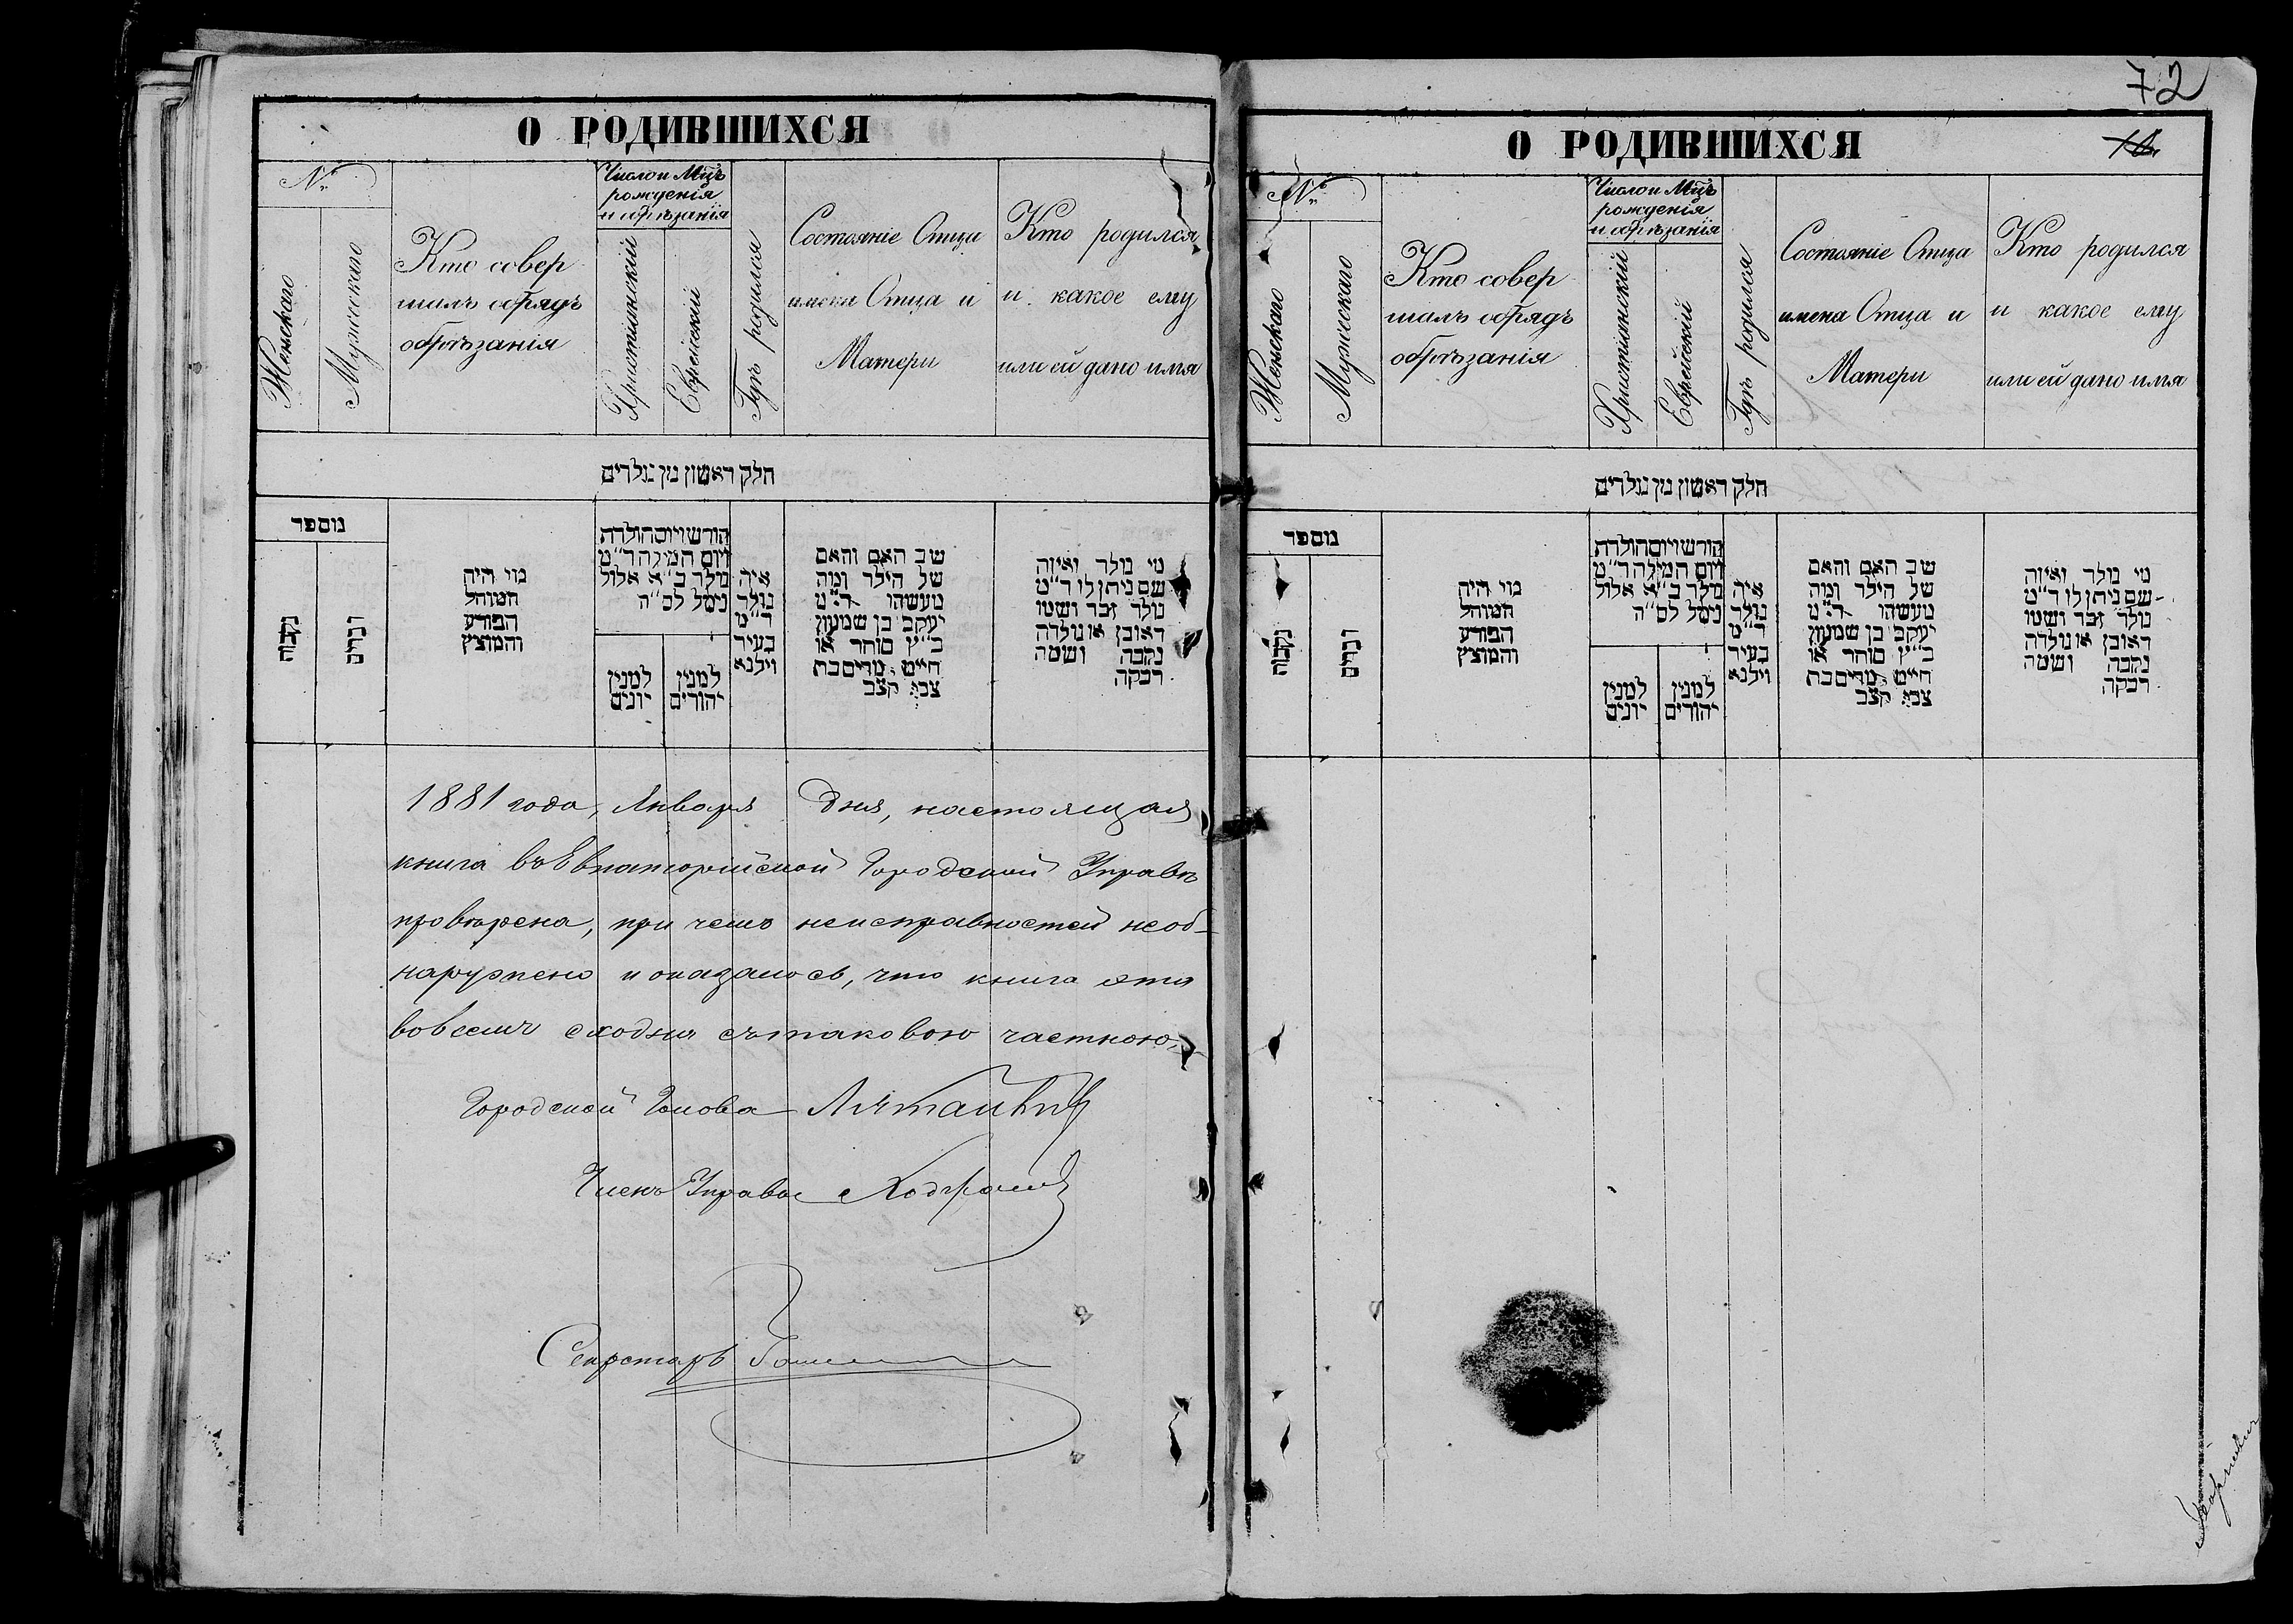 О РОДИВШИХСЯ
№
Женскаго
Мужескаго
Кто совер
шалъ обрядъ
обрѣзанія
Число и Мцъ
рожденія
и обрѣзанія
Христіанскій
Еврейскій
Гдѣ родился
Состояніе Отца
имена Отца и
Матери
Кто родился
и какое ему
или ей дано имя
חלק ראשון מן נולדים
מוספר
נקבות
זכרים
מוי היה
המוהל
הפורע
והמוצץ
חורש ויום הולדת
ויום המילה ד״מ
נולד ב״א אלול
ניסל לס״ה
למנין
יונים
למנין
יהודים
איה
נולד
ד״מ
בעיר
וילנא
שב האם והאם
של הילד ומה
מעשהו ד״מ
יעקב בן שמעון
כ״ץ סוחר או
חייט מרים בת
צבי קצב
מי נולד ואיזה
שם ניתן לו ד״מ
נולד זכר ושמו
ראובן או נולדה
נקבה ושמה
רבקה
1881 года, Января дня, настоящая
книга въ Евпаторійской Городской Управѣ
провѣрена, при чемъ неисправностей необ-
наружено и оказалось, что книга эта
вовсемъ сходна съ таковою частною.
Городской Голова
Членъ Управы
Секретарь
72
О РОДИВШИХСЯ
№
Женскаго
Мужескаго
Кто совер
шалъ обрядъ
обрѣзанія
Число и Мцъ
рожденія
и обрѣзанія
Христіанскій
Еврейскій
Гдѣ родился
Состояніе Отца
имена Отца и
Матери
Кто родился
и какое ему
или ей дано имя
חלק ראשון מן נולדים
מוספר
נקבות
זכרים
מוי היה
המוהל
הפורע
והמוצץ
חורש ויום הולדת
ויום המילה ד״מ
נולד ב״א אלול
ניסל לס״ה
למנין
יונים
למנין
יהודים
איה
נולד
ד״מ
בעיר
וילנא
שב האם והאם
של הילד ומה
מעשהו ד״מ
יעקב בן שמעון
כ״ץ סוחר או
חייט מרים בת
צבי קצב
מי נולד ואיזה
שם ניתן לו ד״מ
נולד זכר ושמו
ראובן או נולדה
נקבה ושמה
רבקה